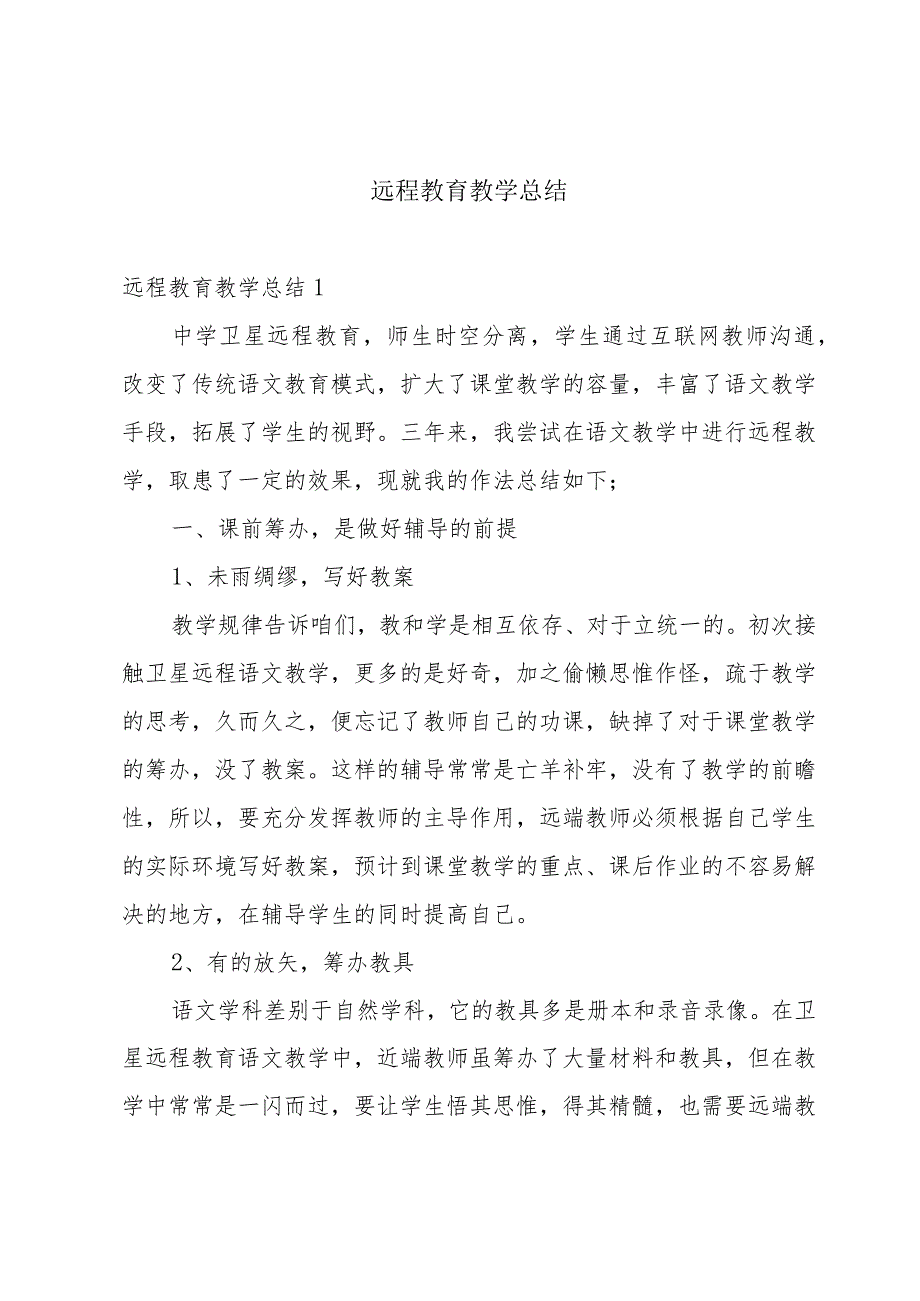 远程教育教学总结
远程教育教学总结1
中学卫星远程教育，师生时空分离，学生通过互联网教师沟通，
改变了传统语文教育模式，扩大了课堂教学的容量，丰富了语文教学
手段，拓展了学生的视野。三年来，我尝试在语文教学中进行远程教
学，取患了一定的效果，现就我的作法总结如下；
一、课前筹办，是做好辅导的前提
1、未雨绸缪，写好教案
教学规律告诉咱们，教和学是相互依存、对于立统一的。初次接
触卫星远程语文教学，更多的是好奇，加之偷懒思惟作怪，疏于教学
的思考，久而久之，便忘记了教师自己的功课，缺掉了对于课堂教学
的筹办，没了教案。这样的辅导常常是亡羊补牢，没有了教学的前瞻
性，所以，要充分发挥教师的主导作用，远端教师必须根据自己学生
的实际环境写好教案，预计到课堂教学的重点、课后作业的不容易解
决的地方，在辅导学生的同时提高自己。
2、有的放矢，筹办教具
语文学科差别于自然学科，它的教具多是册本和录音录像。在卫
星远程教育语文教学中，近端教师虽筹办了大量材料和教具，但在教
学中常常是一闪而过，要让学生悟其思惟，得其精髓，也需要远端教